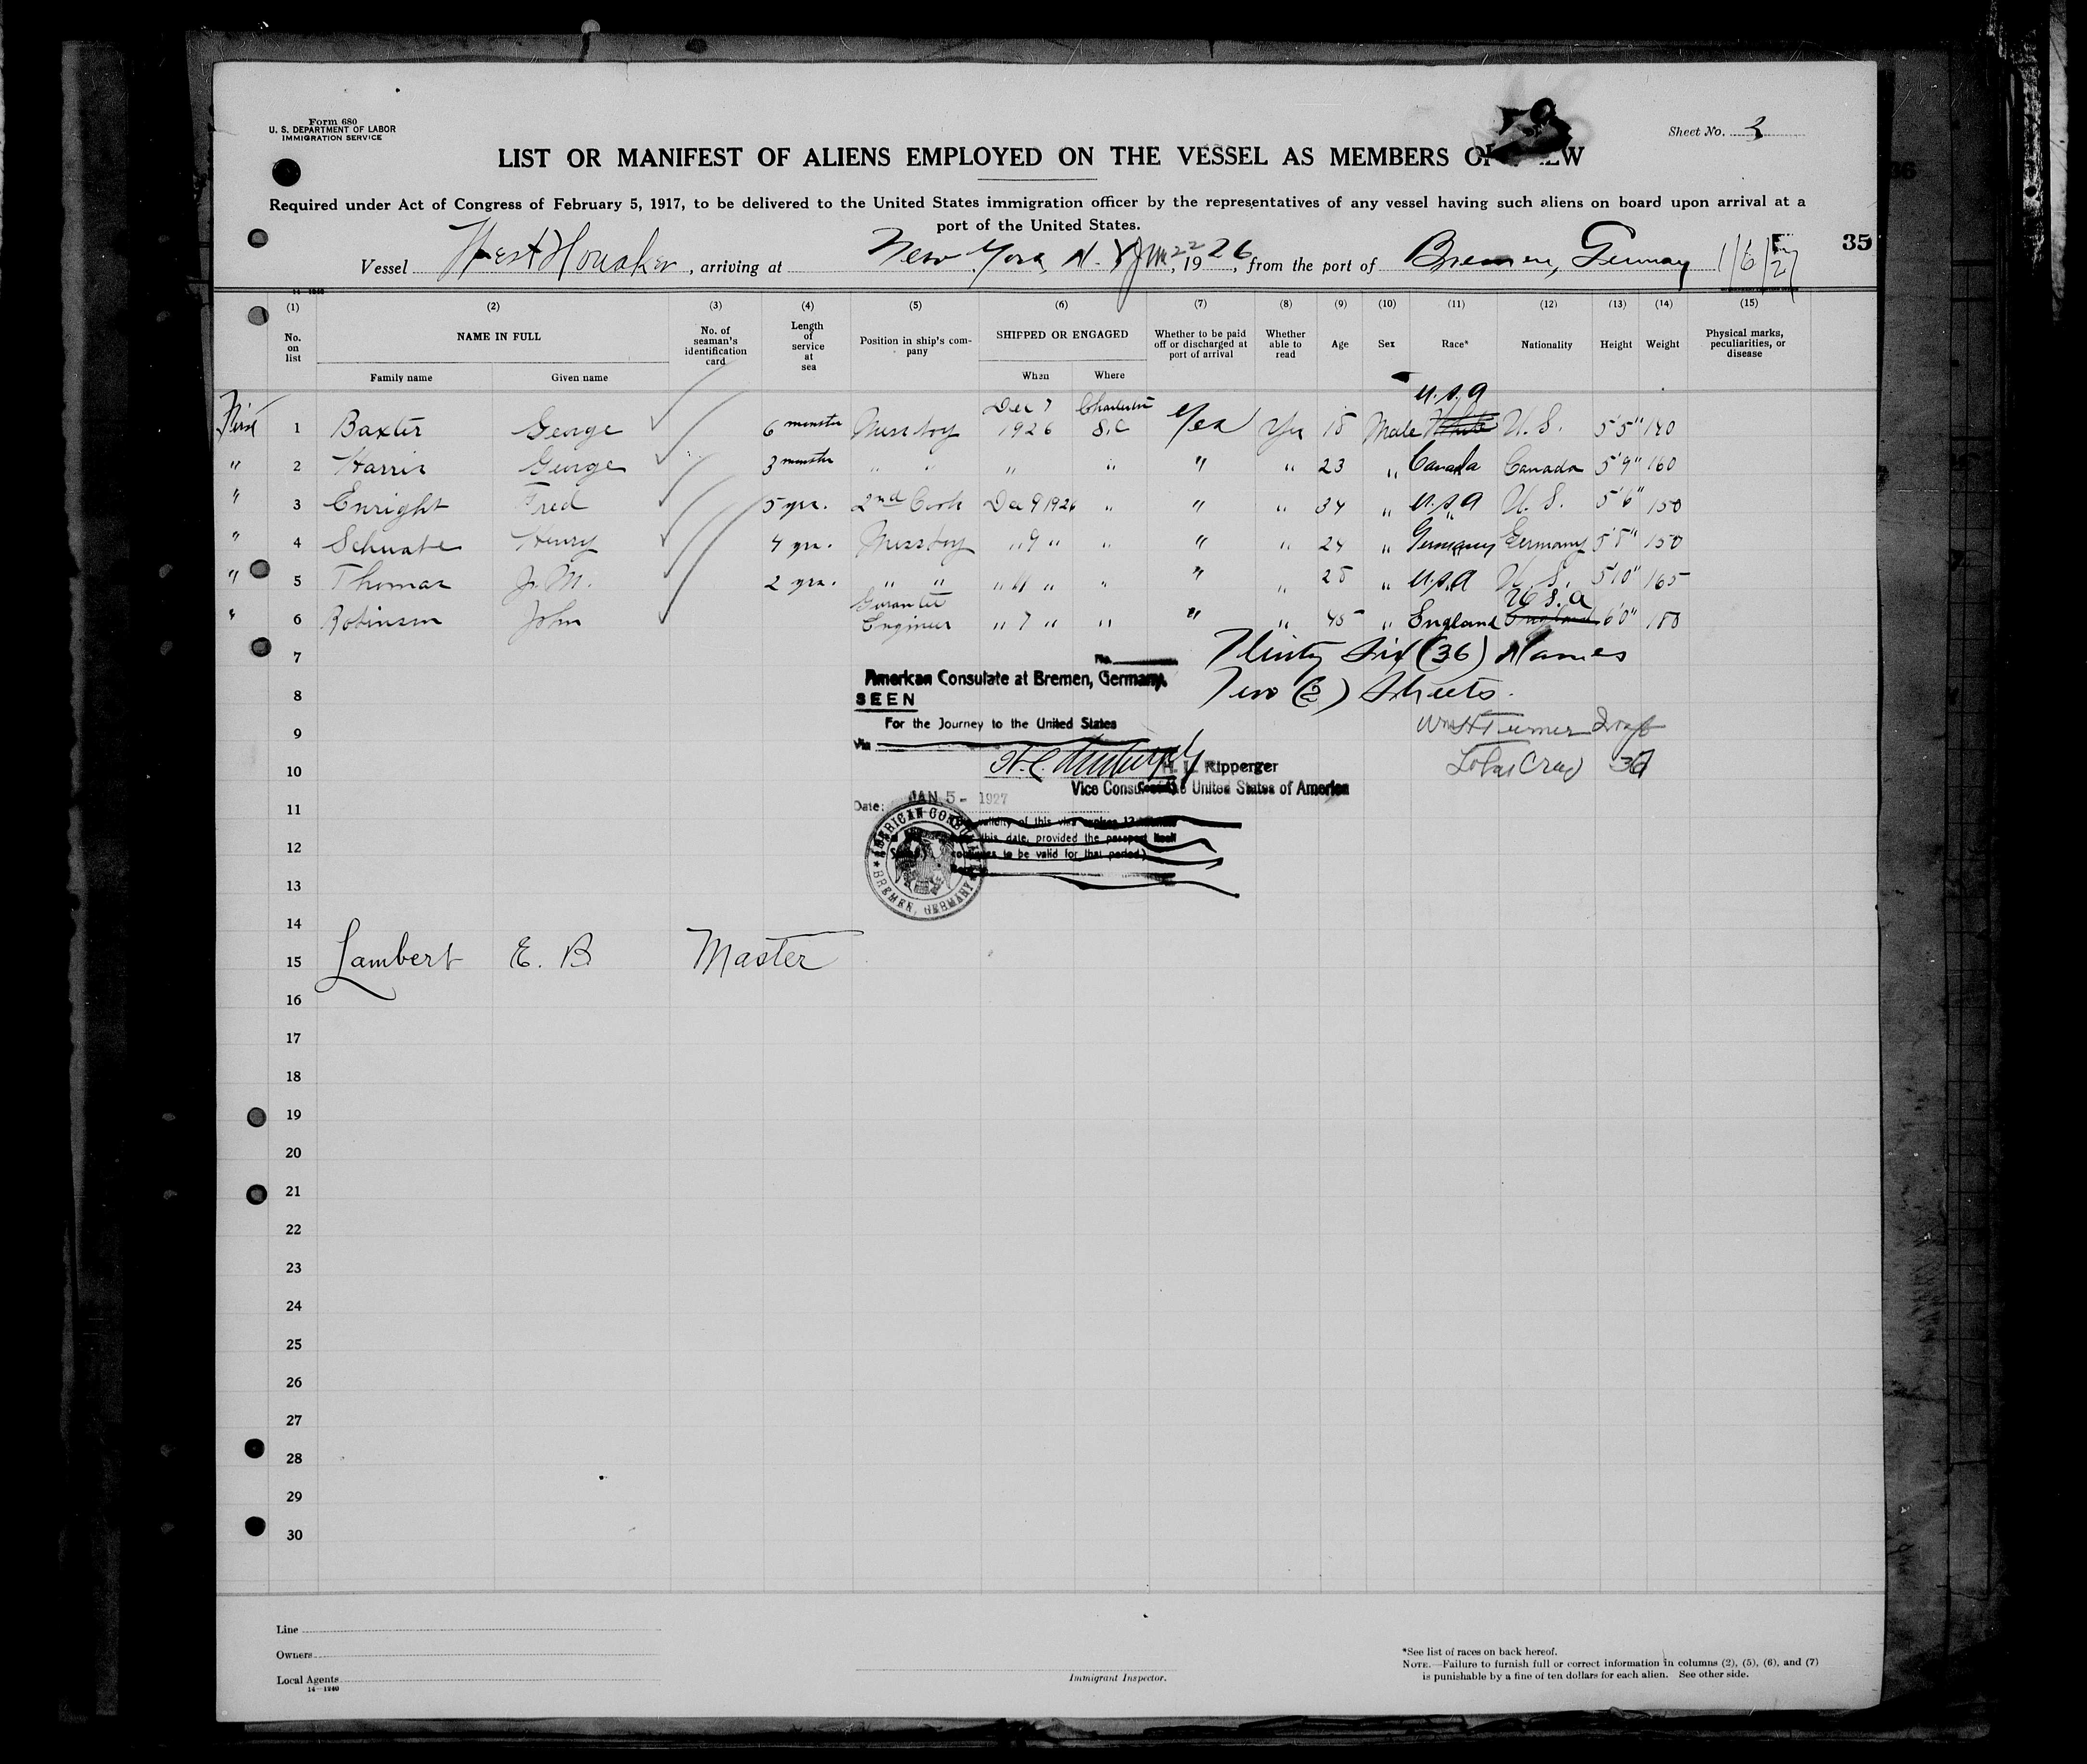 Form 680
U. S. DEPARTMENT OF LABOR
IMMIGRATION SERVICE
Sheet No. 2
LIST OR MANIFEST OF ALIENS EMPLOYED ON THE VESSEL AS MEMBERS OF
Required under Act of Congress of February 5, 1917, to be delivered to the United States immigration officer by the representatives of any vessel having such aliens on board upon arrival at a
port of the United States.
35
Vessel West Honaker, arriving at New York, N. Y. Jan 22, 1926, from the port of Bremen, Germany 1/6/27
(1) (2) (3) (4) (5) (6) (7) (8) (9) (10) (11) (12) (13) (14) (15)
No. on list NAME IN FULL Family name Given name No. of seaman's identification card Length of service at sea Position in ship's company SHIPPED OR ENGAGED When Where Whether to be paid off or discharged at port of arrival Whether able to read Age Sex Race* Nationality Height Weight Physical marks, peculiarities, or disease
First 1 Baxter George 6 months Messboy Dec 7 1926 Charleston S.C Yes Yes 18 Male White U.S.A U.S. 5'5" 140
" 2 Harris George 3 months " " " " " " 23 " Canada Canada 5'9" 160
" 3 Enright Fred 5 yrs. 2nd Cook Dec 9 1926 " " " 34 " U.S.A U.S. 5'6" 150
" 4 Schwabe Henry 4 yrs. Messboy " 9 " " " " 24 " Germany Germany 5'8" 150
" 5 Thomas J. M. 2 yrs. " " " 11 " " " " 28 " U.S.A U.S. 5'10" 165
" 6 Robinson John Guarantee Engineer " 7 " " " " 45 " England England U.S.A 6'0" 180
7 Thirty Six (36) Names
8 Two (2) Sheets.
No.
American Consulate at Bremen, Germany.
SEEN
For the Journey to the United States
Via
9 Wm H Turner
10 Total Crew 36
H. L. Ripperger
Vice Consul of the United States of America
Date: JAN 5 - 1927
11
validity of this visa expires 12 months
this date, provided the passport itself
continues to be valid for that period.)
AMERICAN CONSULATE
BREMEN, GERMANY
12
13
14
15 Lambert E. B. Master
16
17
18
19
20
21
22
23
24
25
26
27
28
29
30
Line
Owners
Local Agents
14—1240
Immigrant Inspector.
*See list of races on back hereof.
NOTE.—Failure to furnish full or correct information in columns (2), (5), (6), and (7)
is punishable by a fine of ten dollars for each alien. See other side.